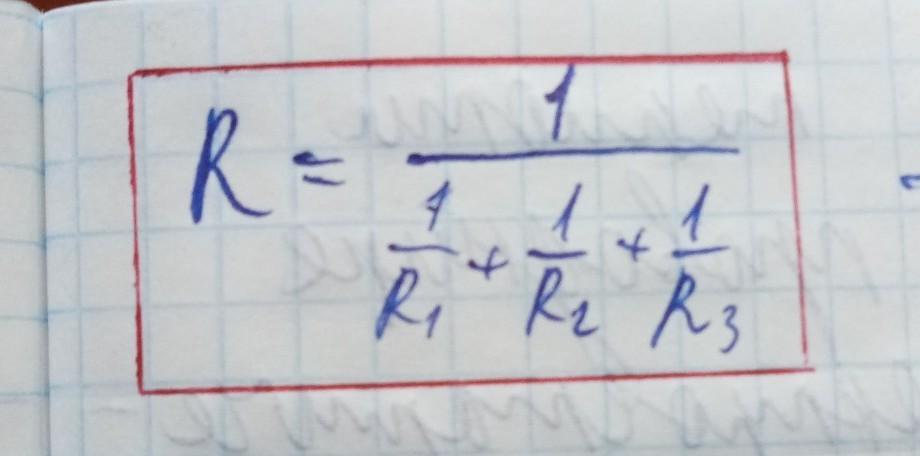 R = 1 / (1/R₁ + 1/R₂ + 1/R₃)